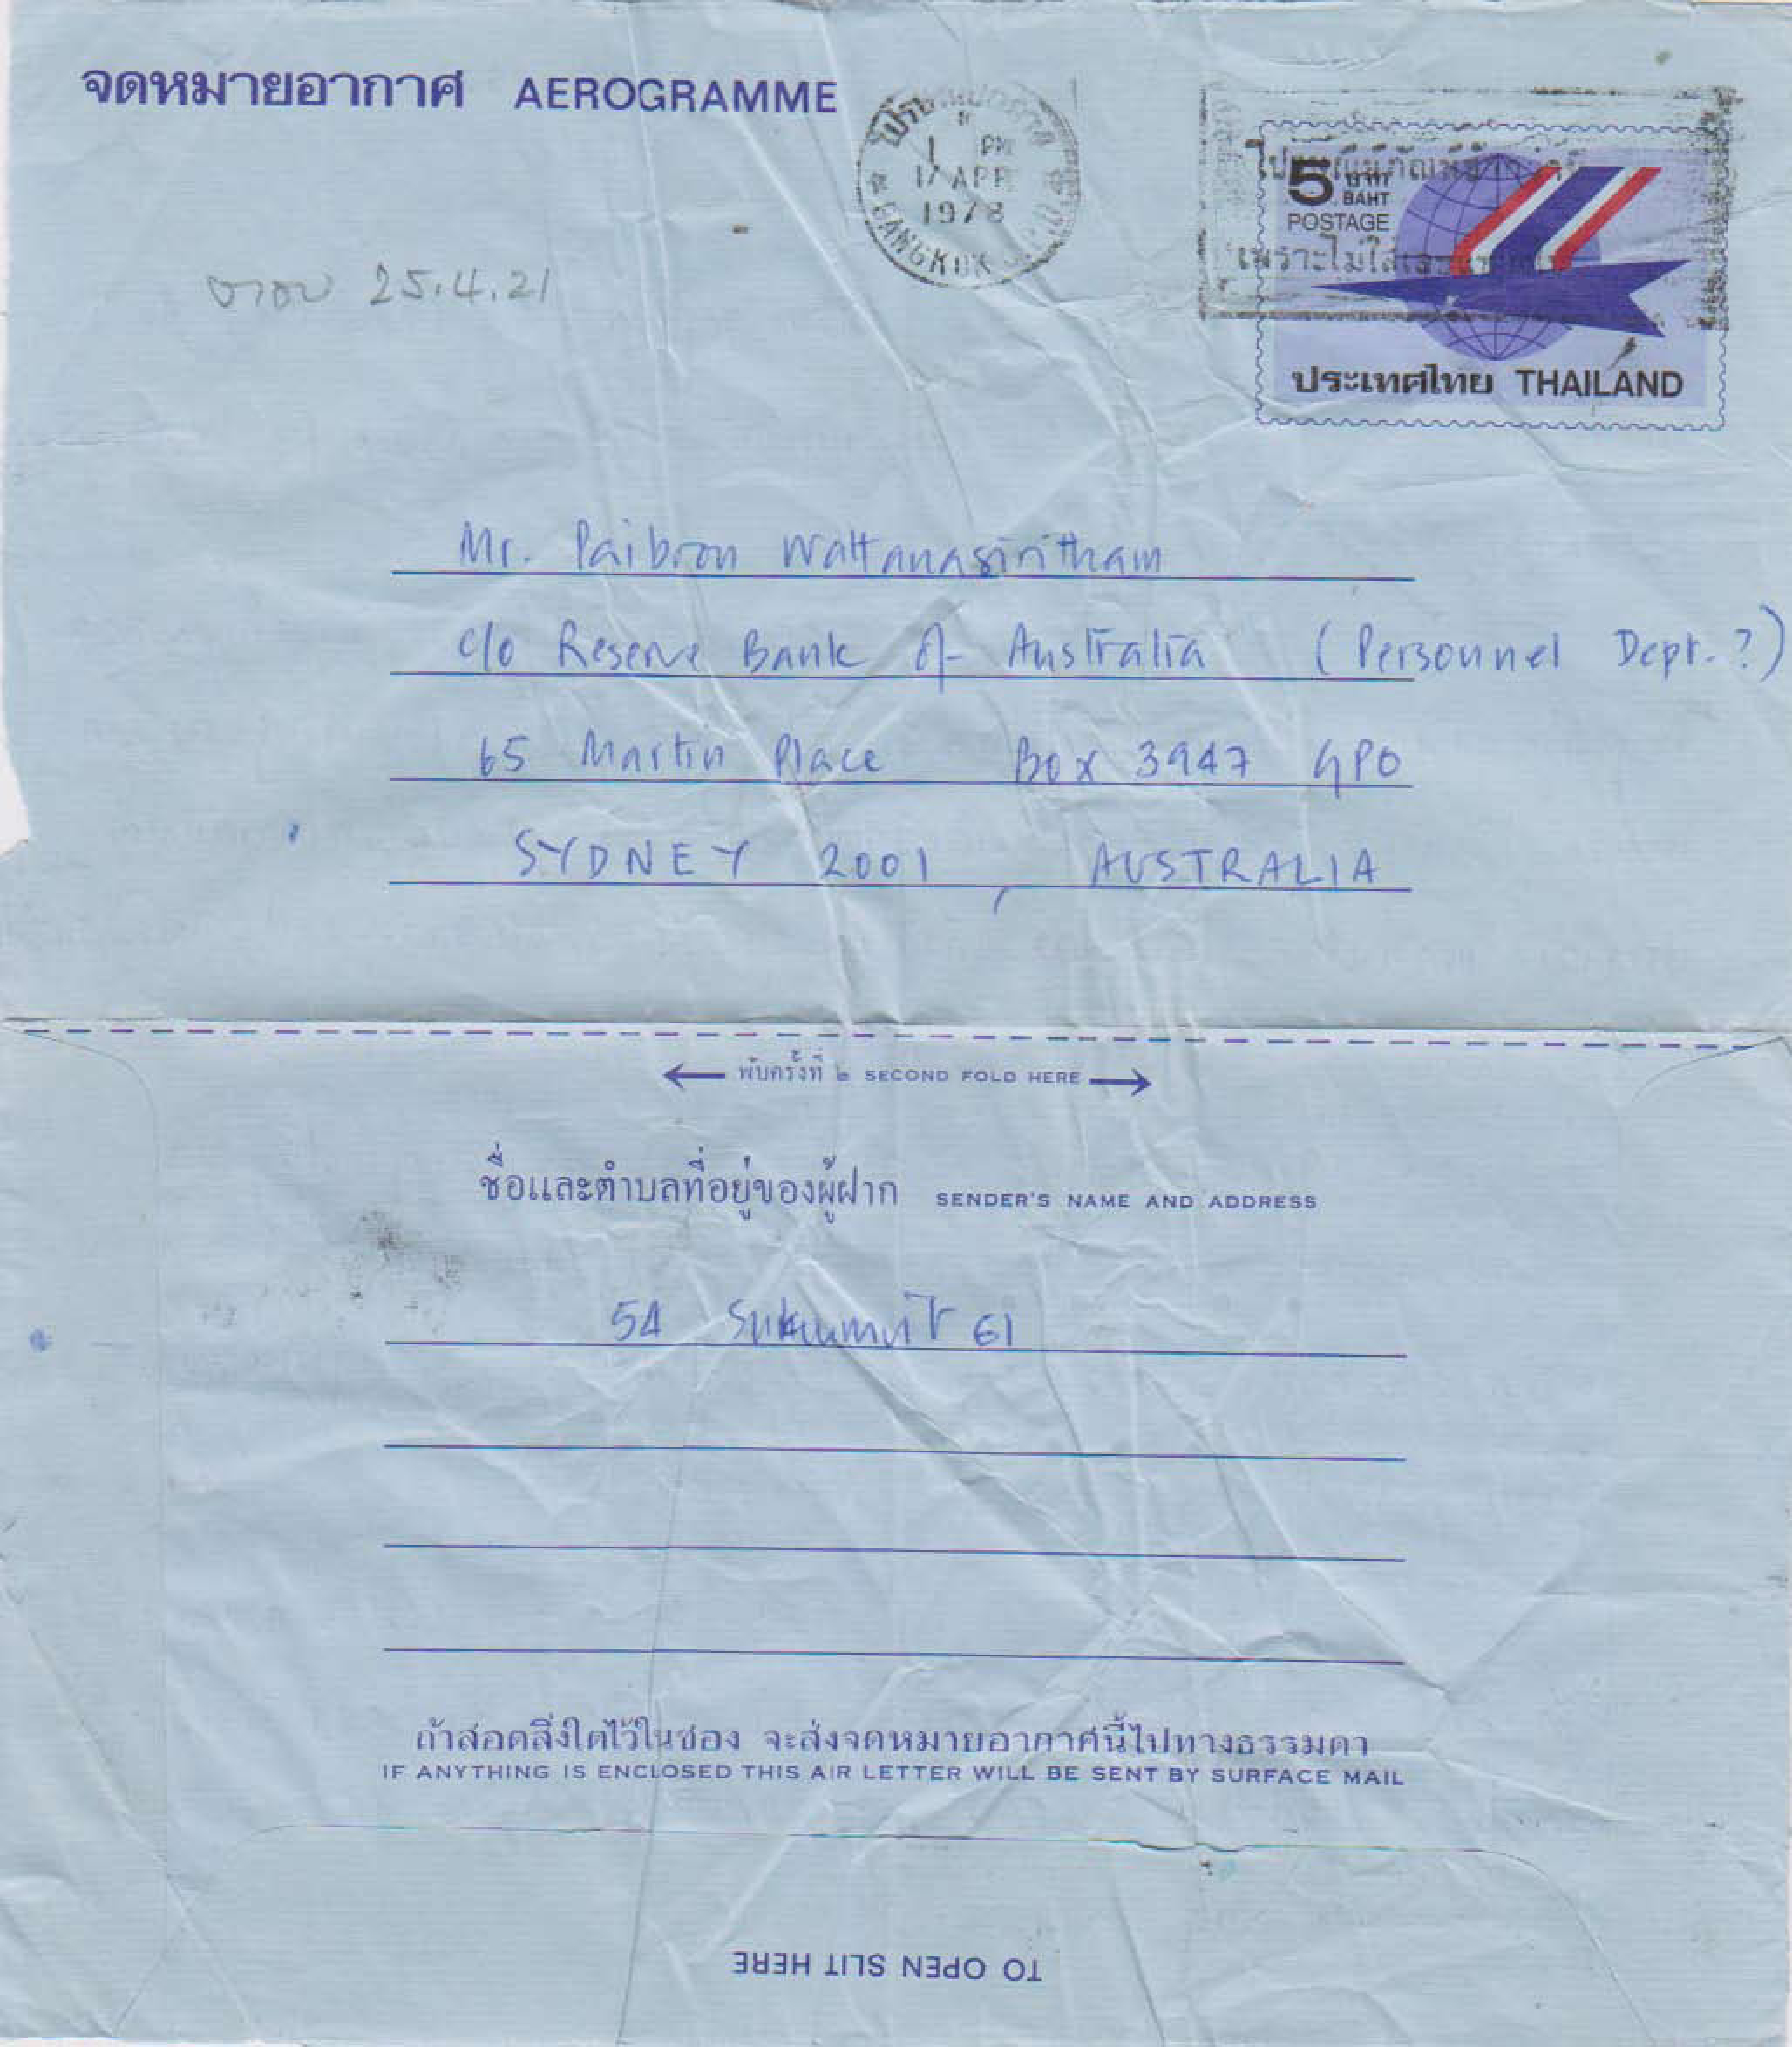 จดหมายอากาศ AEROGRAMME
1 PM
17 APR
1978
BANGKOK
5 บาท
BAHT
POSTAGE
เพราะไม่ใส่
ประเทศไทย THAILAND
ตอบ 25.4.21
Mr. Paiboon Wattanasiritham
c/o Reserve Bank of Australia (Personnel Dept.?)
65 Martin Place Box 3947 GPO
SYDNEY 2001, AUSTRALIA
พับครั้งที่ ๒ SECOND FOLD HERE
ชื่อและตำบลที่อยู่ของผู้ฝาก SENDER'S NAME AND ADDRESS
54 Sukumvit 61
ถ้าสอดสิ่งใดไว้ในซอง จะส่งจดหมายอากาศนี้ไปทางธรรมดา
IF ANYTHING IS ENCLOSED THIS AIR LETTER WILL BE SENT BY SURFACE MAIL
TO OPEN SLIT HERE